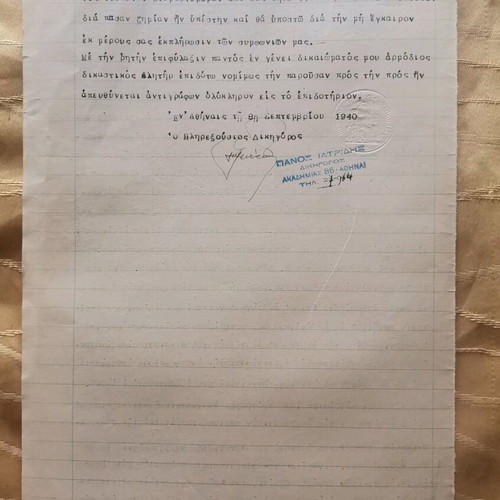 διά πασαν ζημίαν ἥν ὑπέστην καί θά ὑποστῶ διά τήν μή ἔγκαιρον
ἐκ μέρους σας ἐκπλήρωσιν τῶν συμφωνιῶν μας.
Μέ τήν ρητήν ἐπιφύλαξιν παντός ἐν γένει δικαιώματός μου ἁρμόδιος
δικαστικός κλητήρ ἐπιδότω νομίμως τήν παροῦσαν πρός τήν πρός ἥν
ἀπευθύνεται ἀντιγράφων ὁλόκληρον εἰς τό ἐπιδοτήριον.
Ἐν Ἀθήναις τῇ 8ῃ Σεπτεμβρίου 1940
Ὁ Πληρεξούσιος Δικηγόρος
ΠΑΝΟΣ ΙΑΤΡΙΔΗΣ
ΔΙΚΗΓΟΡΟΣ
ΑΚΑΔΗΜΙΑΣ 86-ΑΘΗΝΑΙ
ΤΗΛ.